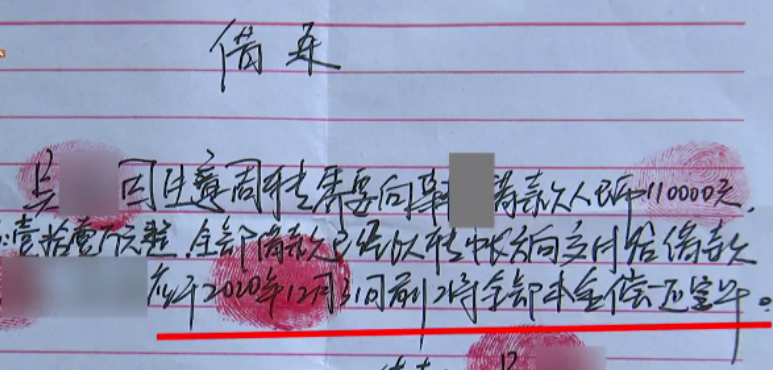 借条
吴 因生意周转需要向韩 借款人民币110000元,
:壹拾壹万元整.全部借款已经以转帐方向交付给借款
应于2020年12月31日前将全部本金偿还完毕。